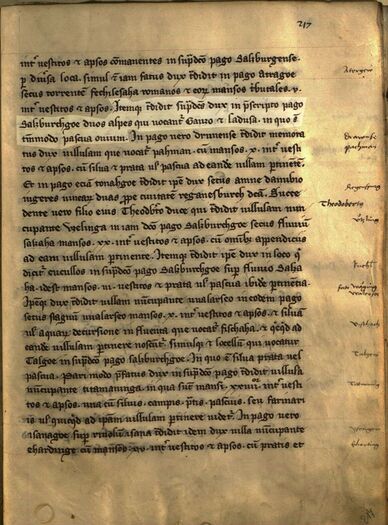 217
int' vestitos & apsos cōmanentes in sup̄dc̄o pago Saltzburgense.
p diuisa loca. simul & iam fatus dux t̄didit in pago Atragoe
secus torrentē romanos & eoꝝ mansos t̄butales. v.
int' vestitos & apsos. Itemq̄ t̄didit sup̄dc̄s dux in p̄scripto pago
Salzburchgoe duos alpes qui vocant' Gauzo & ladusa. in quo ē
tm̄modo pascua ouium. In pago vero drunense t̄didit memora
tus dux villulam que vocat' pahman. cū mansos. v. int' vesti
tos & apsos. cū silua & prata vl' pascua ad eande villam ptinent'.
Et in pago eciā tonahgoe t̄didit ip̄e dux secus amne danubio
iugeres uineaꝝ duas ꝓpe ciuitatē reganesburch dc̄ā. Succe
dente vero filio eius Theodb̄to duce qui t̄didit villulam nun
cupante Welinga in iam dc̄o pago Saltzburchgoe secus fluuiū
salzaha mansos. xx. int' vestitos & apsos. cū om̄ibꝫ appendiciis
ad eam villulam ptinente. Itemq̄ t̄didit ip̄e dux in loco q̄
dicit' cucullos in sup̄dc̄o pago Saltzburchgoe sup fluuio Salza
ha. idest mansos. vi. vestitos & prata vl' pascua ibidē ptinentia.
Ip̄eqꝫ dux t̄didit villam nūcupante walarseo in eodem pago
secus stagnū walarseo mansos. x. int' vestitos & apsos. & siluā
vl' aquaꝝ decursione in fluenta que vocat' fischaha. & qc̄qd ad
eande villulam ptinere noscunt'. simulqꝫ & locellū qui vocatur
Talgoe in sup̄dc̄o pago saltzburchgoe. In quo ē silua prata vel
pascua. Pari modo p̄fatus dux in sup̄dc̄o pago t̄didit villula
nūcupante titamaninga. in qua sunt mansi. xxiiii. int' vesti
tos & apsos. una cū siluis. campis. p̄tis. pascuis. seu farinari
is vl' quicqd ad ip̄am villulam ptinere videt'. In pago vero
isanagoe sup riuolū isana t̄didit idem dux villa nūcupante
ehardinge cū mansos. xv. int' vestitos & apsos. cū pratis et
Atergew
pachman
Regenspurg
Theodobertg
Kuchl
Walersee
Talgew
Titmaning
Eharting